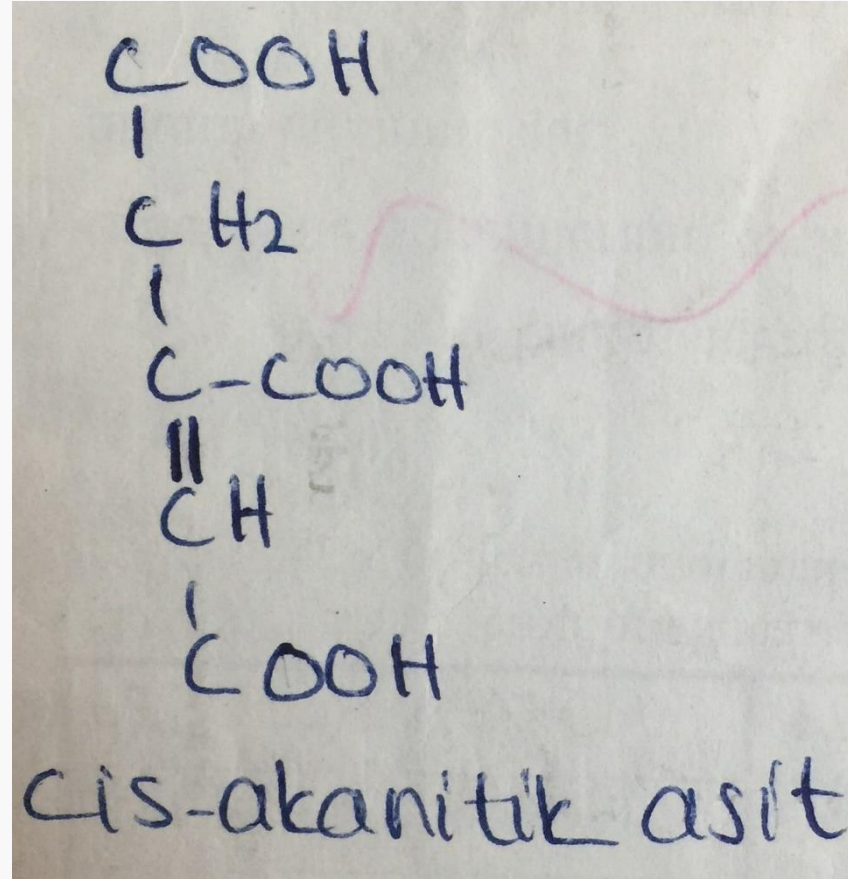 COOH
|
CH2
|
C-COOH
||
CH
|
COOH
cis-akanitik asit